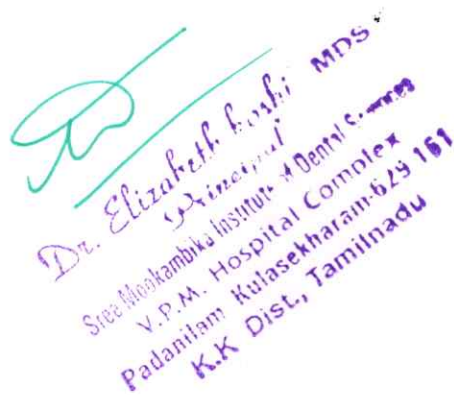 Dr. Elizabeth Koshi MDS
Principal
Sree Mookambika Institute of Dental Sciences
V.P.M. Hospital Complex
Padanilam Kulasekharam-629 161
K.K Dist., Tamilnadu